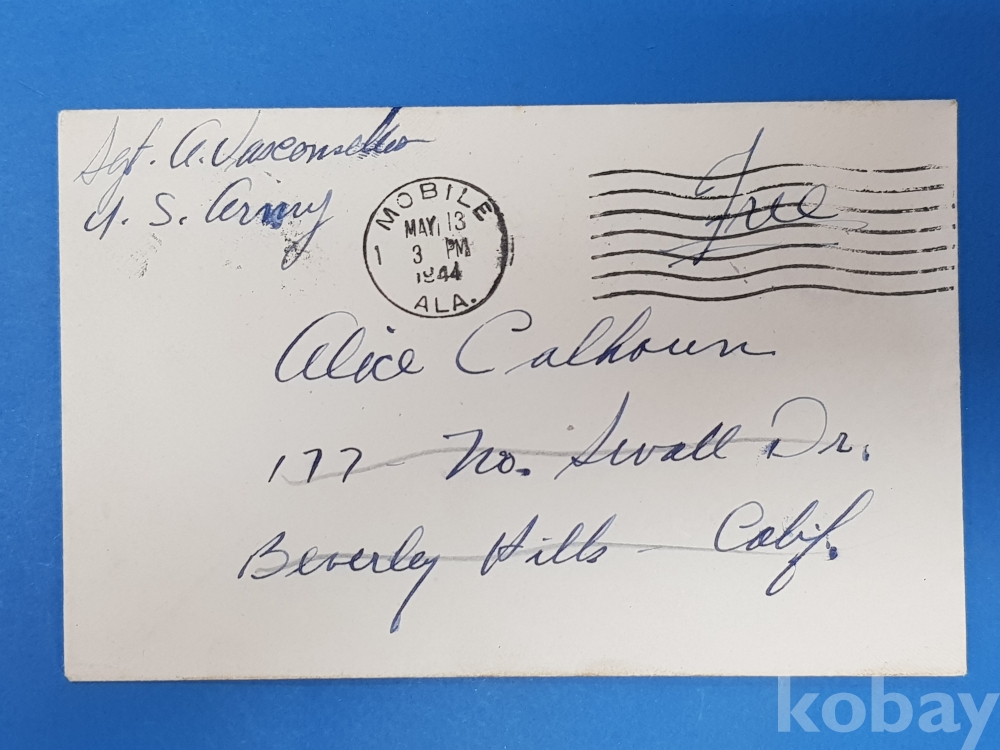 Sgt. A. Vasconsellos
U. S. Army
MOBILE
MAY 13
1 3 PM
1944
ALA.
Free
Alice Calhoun
177 No. Swall Dr.
Beverly Hills - Calif.
kobay